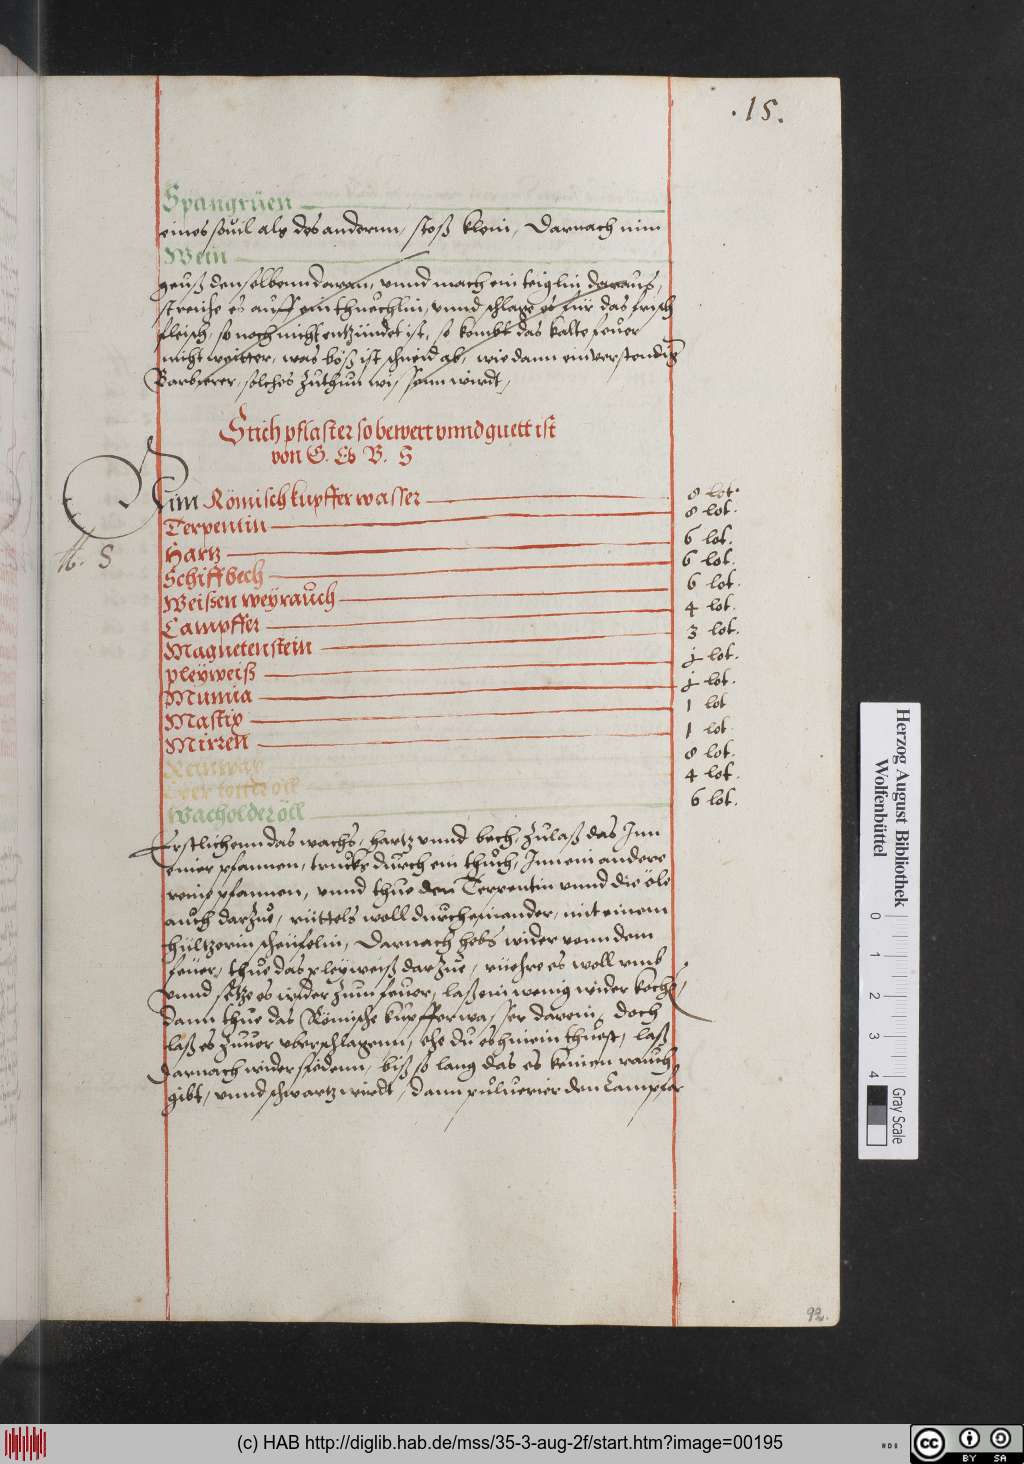 .15.
Spangrüen
eines souil als des anderm, stoß klein, Darnach nim
Wein
geuß denselbenn daran, vnnd mach ein teiglin daraus,
streiche es auff ein thuechlin, vnnd schlage es für das frisch
fleisch, so noch nicht entzündet ist, so kombt das kalte feuer
nicht weitter, was böß ist schneid ab, wie dann ein verstendig
Barbierer, solches zuthun wissenn wirdt,
Stich pflaster so bewert vnnd guett ist
von G. E B. S
Nim Römisch kupffer wasser 8 lot.
Terpentin 8 lot.
Hartz 6 lot.
Schiffbech 6 lot.
Weissen weyrauch 6 lot.
Campffer 4 lot.
Magnetenstein 3 lot.
pleyweiß j lot.
Mumia j lot.
Mastix 1 lot
Mirren 1 lot.
Reinwax 8 lot.
4 lot.
Wacholder öel 6 lot.
Erstlichenn das wachs, hartz vnnd bech, zulaß das Inn
einer pfannen, trucks durch ein thuch, Inn ein andere
reine pfannen, vnnd thue den Terpentin vnnd die öle
auch darzue, rüttels woll durcheinander, mit einem
hültzerm scheufelin, Darnach hebs wider vonn dem
feuer, thue das pleyweiß darzue, rüehre es woll vmb
vnnd setze es wider zum feuer, laß ein wenig wider koche,
dann thue das Römische kupfferwasser darein, doch
laß es zuuor vberschlagenn, ehe du es hinein thuest, laß
darnach wider siedenn, biß so lang das es keinen rauch
gibt, vnnd schwartz wirdt, dann puluerier den Campfer
92.
Herzog August Bibliothek
Wolfenbüttel
0 1 2 3 4
Gray Scale
(c) HAB http://diglib.hab.de/mss/35-3-aug-2f/start.htm?image=00195
cc BY SA